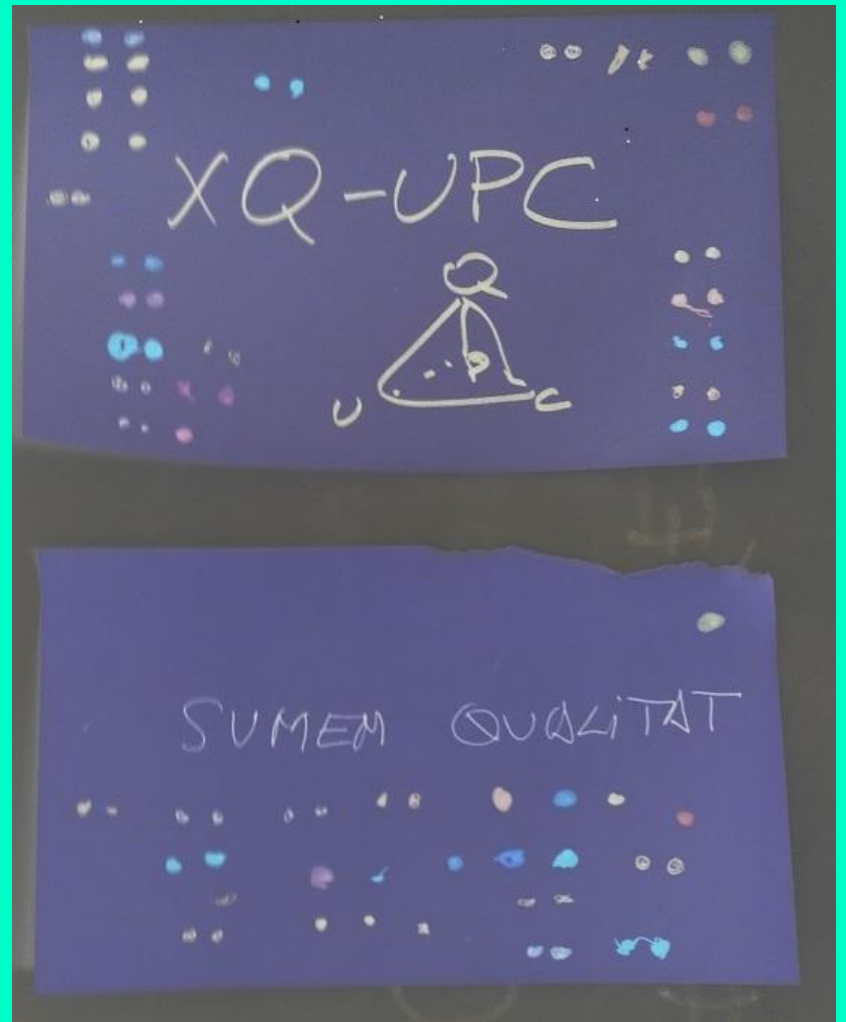 XQ-UPC
Q
P
U C
SUMEM QUALiTAT